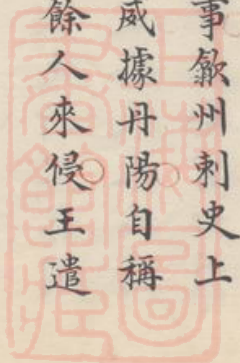 事歙州刺史上
威據丹陽自稱
餘人來侵王遣